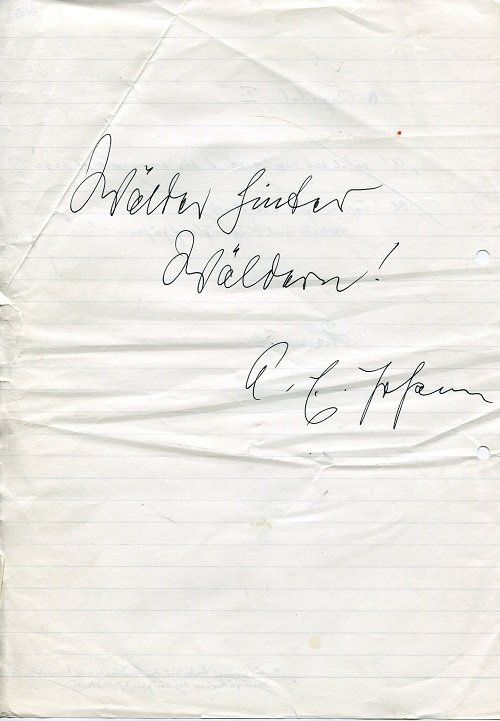 Wälder hinter
Wäldern!
A. E. Johann